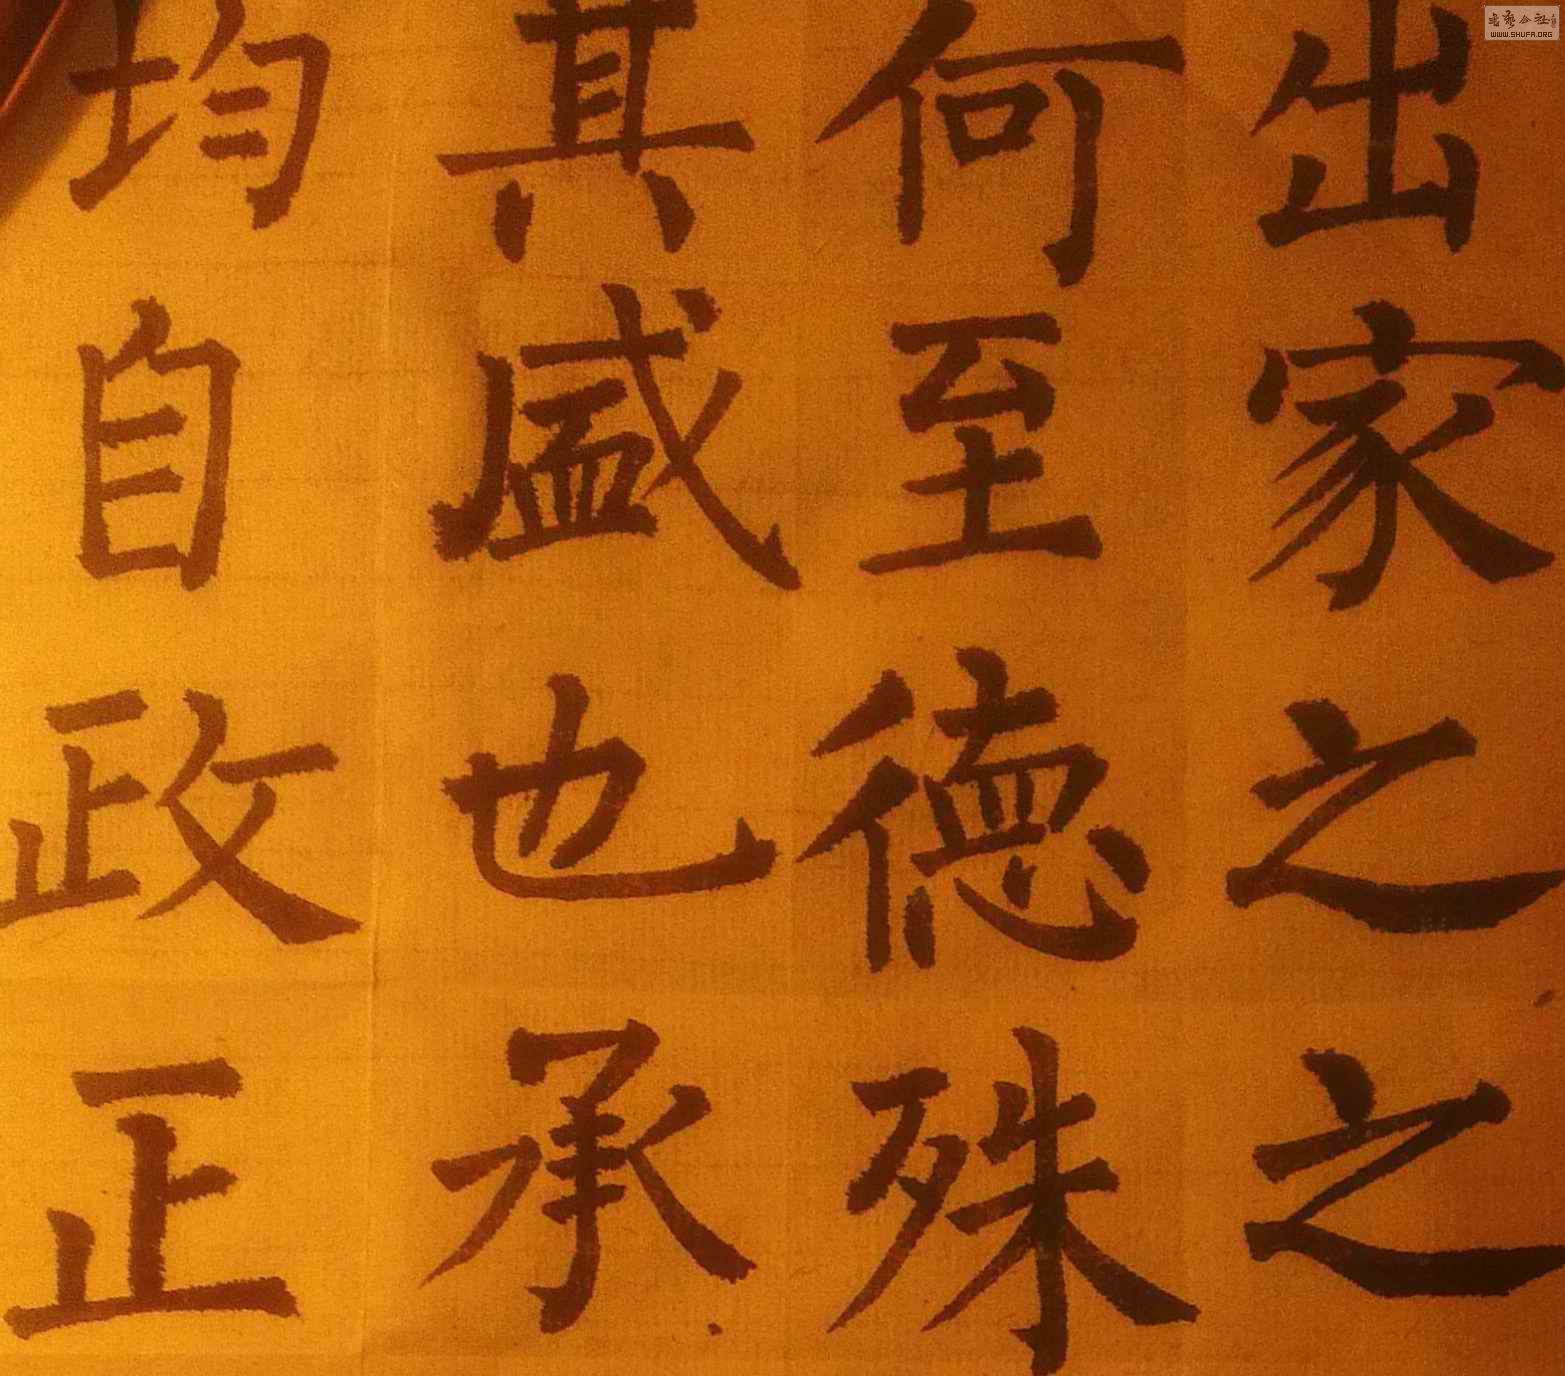 出家之之
何至德殊
其盛也承
均自政正
WWW.SHUFA.ORG